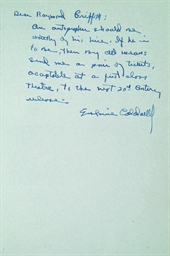 Dear Raymond Griffith:
An autographer should be
worthy of his hire. If he is
to me, then by all means
send me a pair of tickets,
acceptable at a first class
theatre, to the next 20th Century
release.
Erskine Caldwell